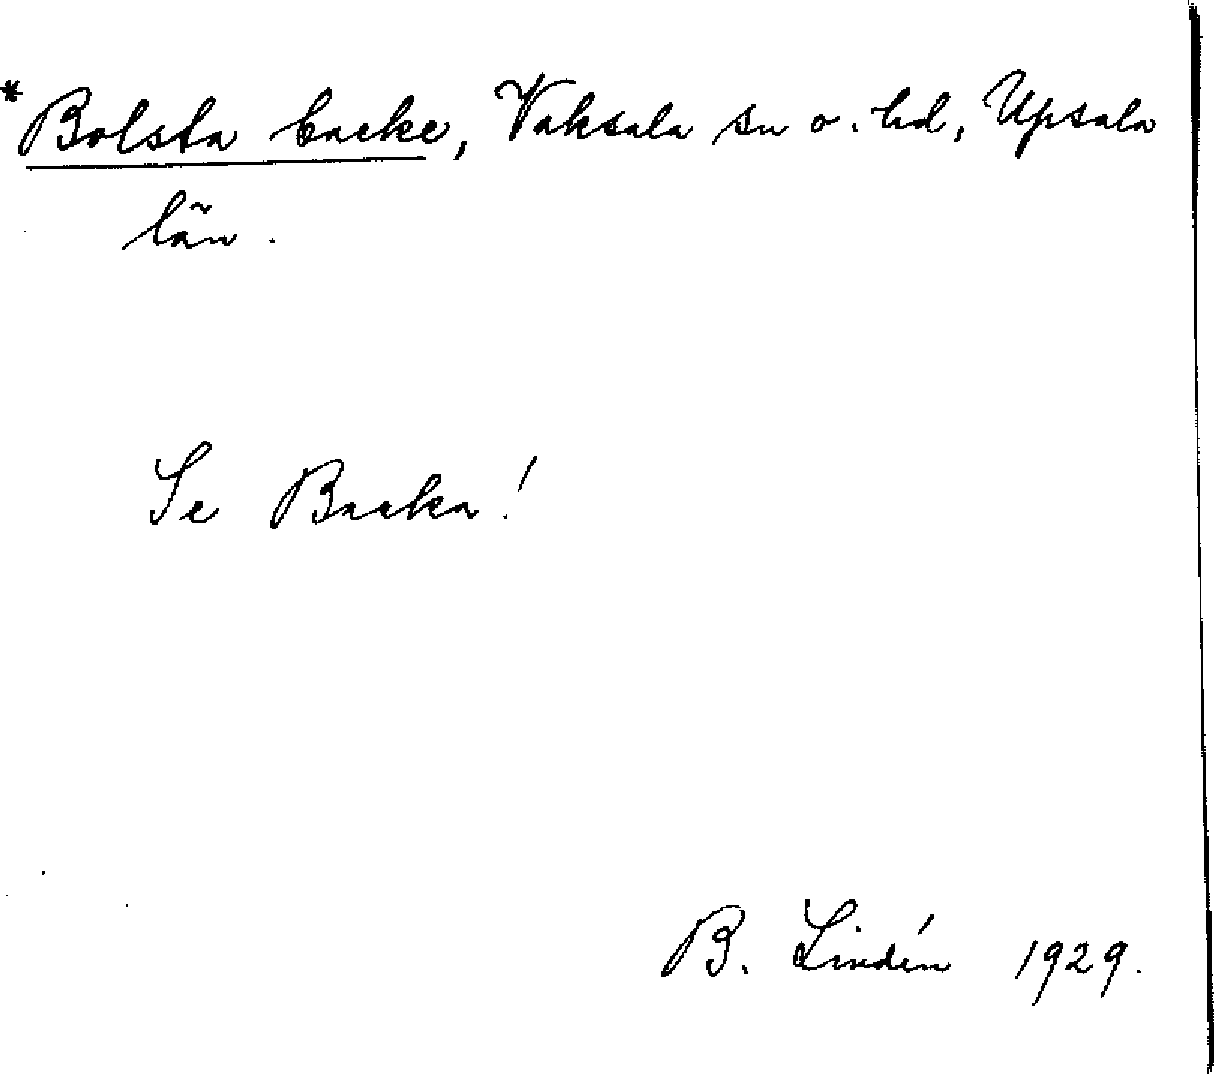 *Bolsta backe, Vaksala sn o. hd, Upsala
län.
Se Backa!
B. Lindén 1929.